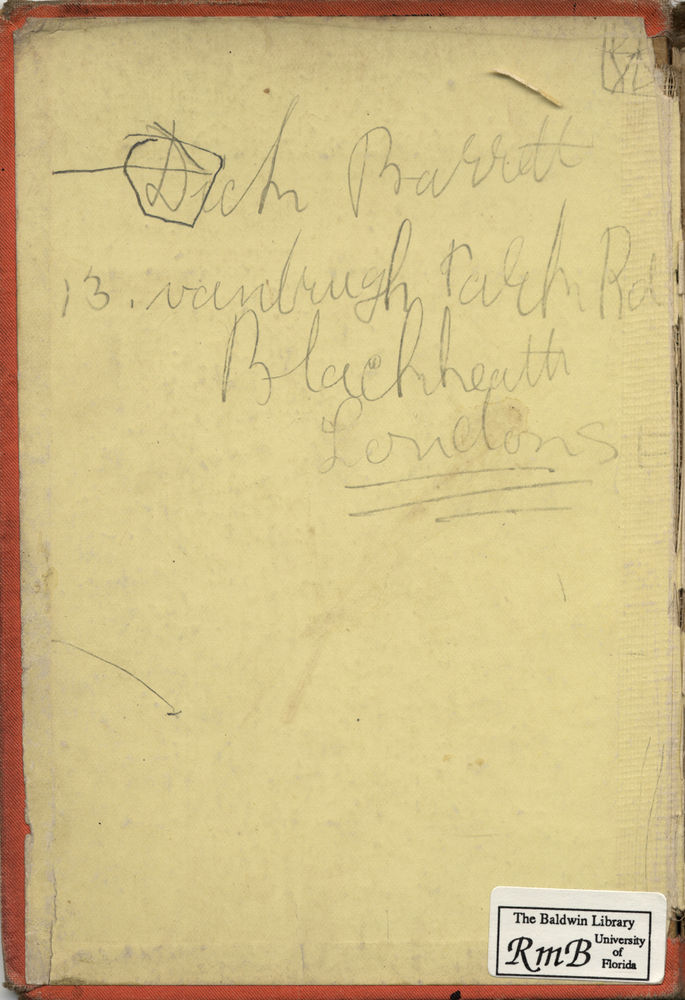 Dick Barrett
13. vanbrugh Park Rd
Blackheath
London S E
The Baldwin Library
RmB
University
of
Florida